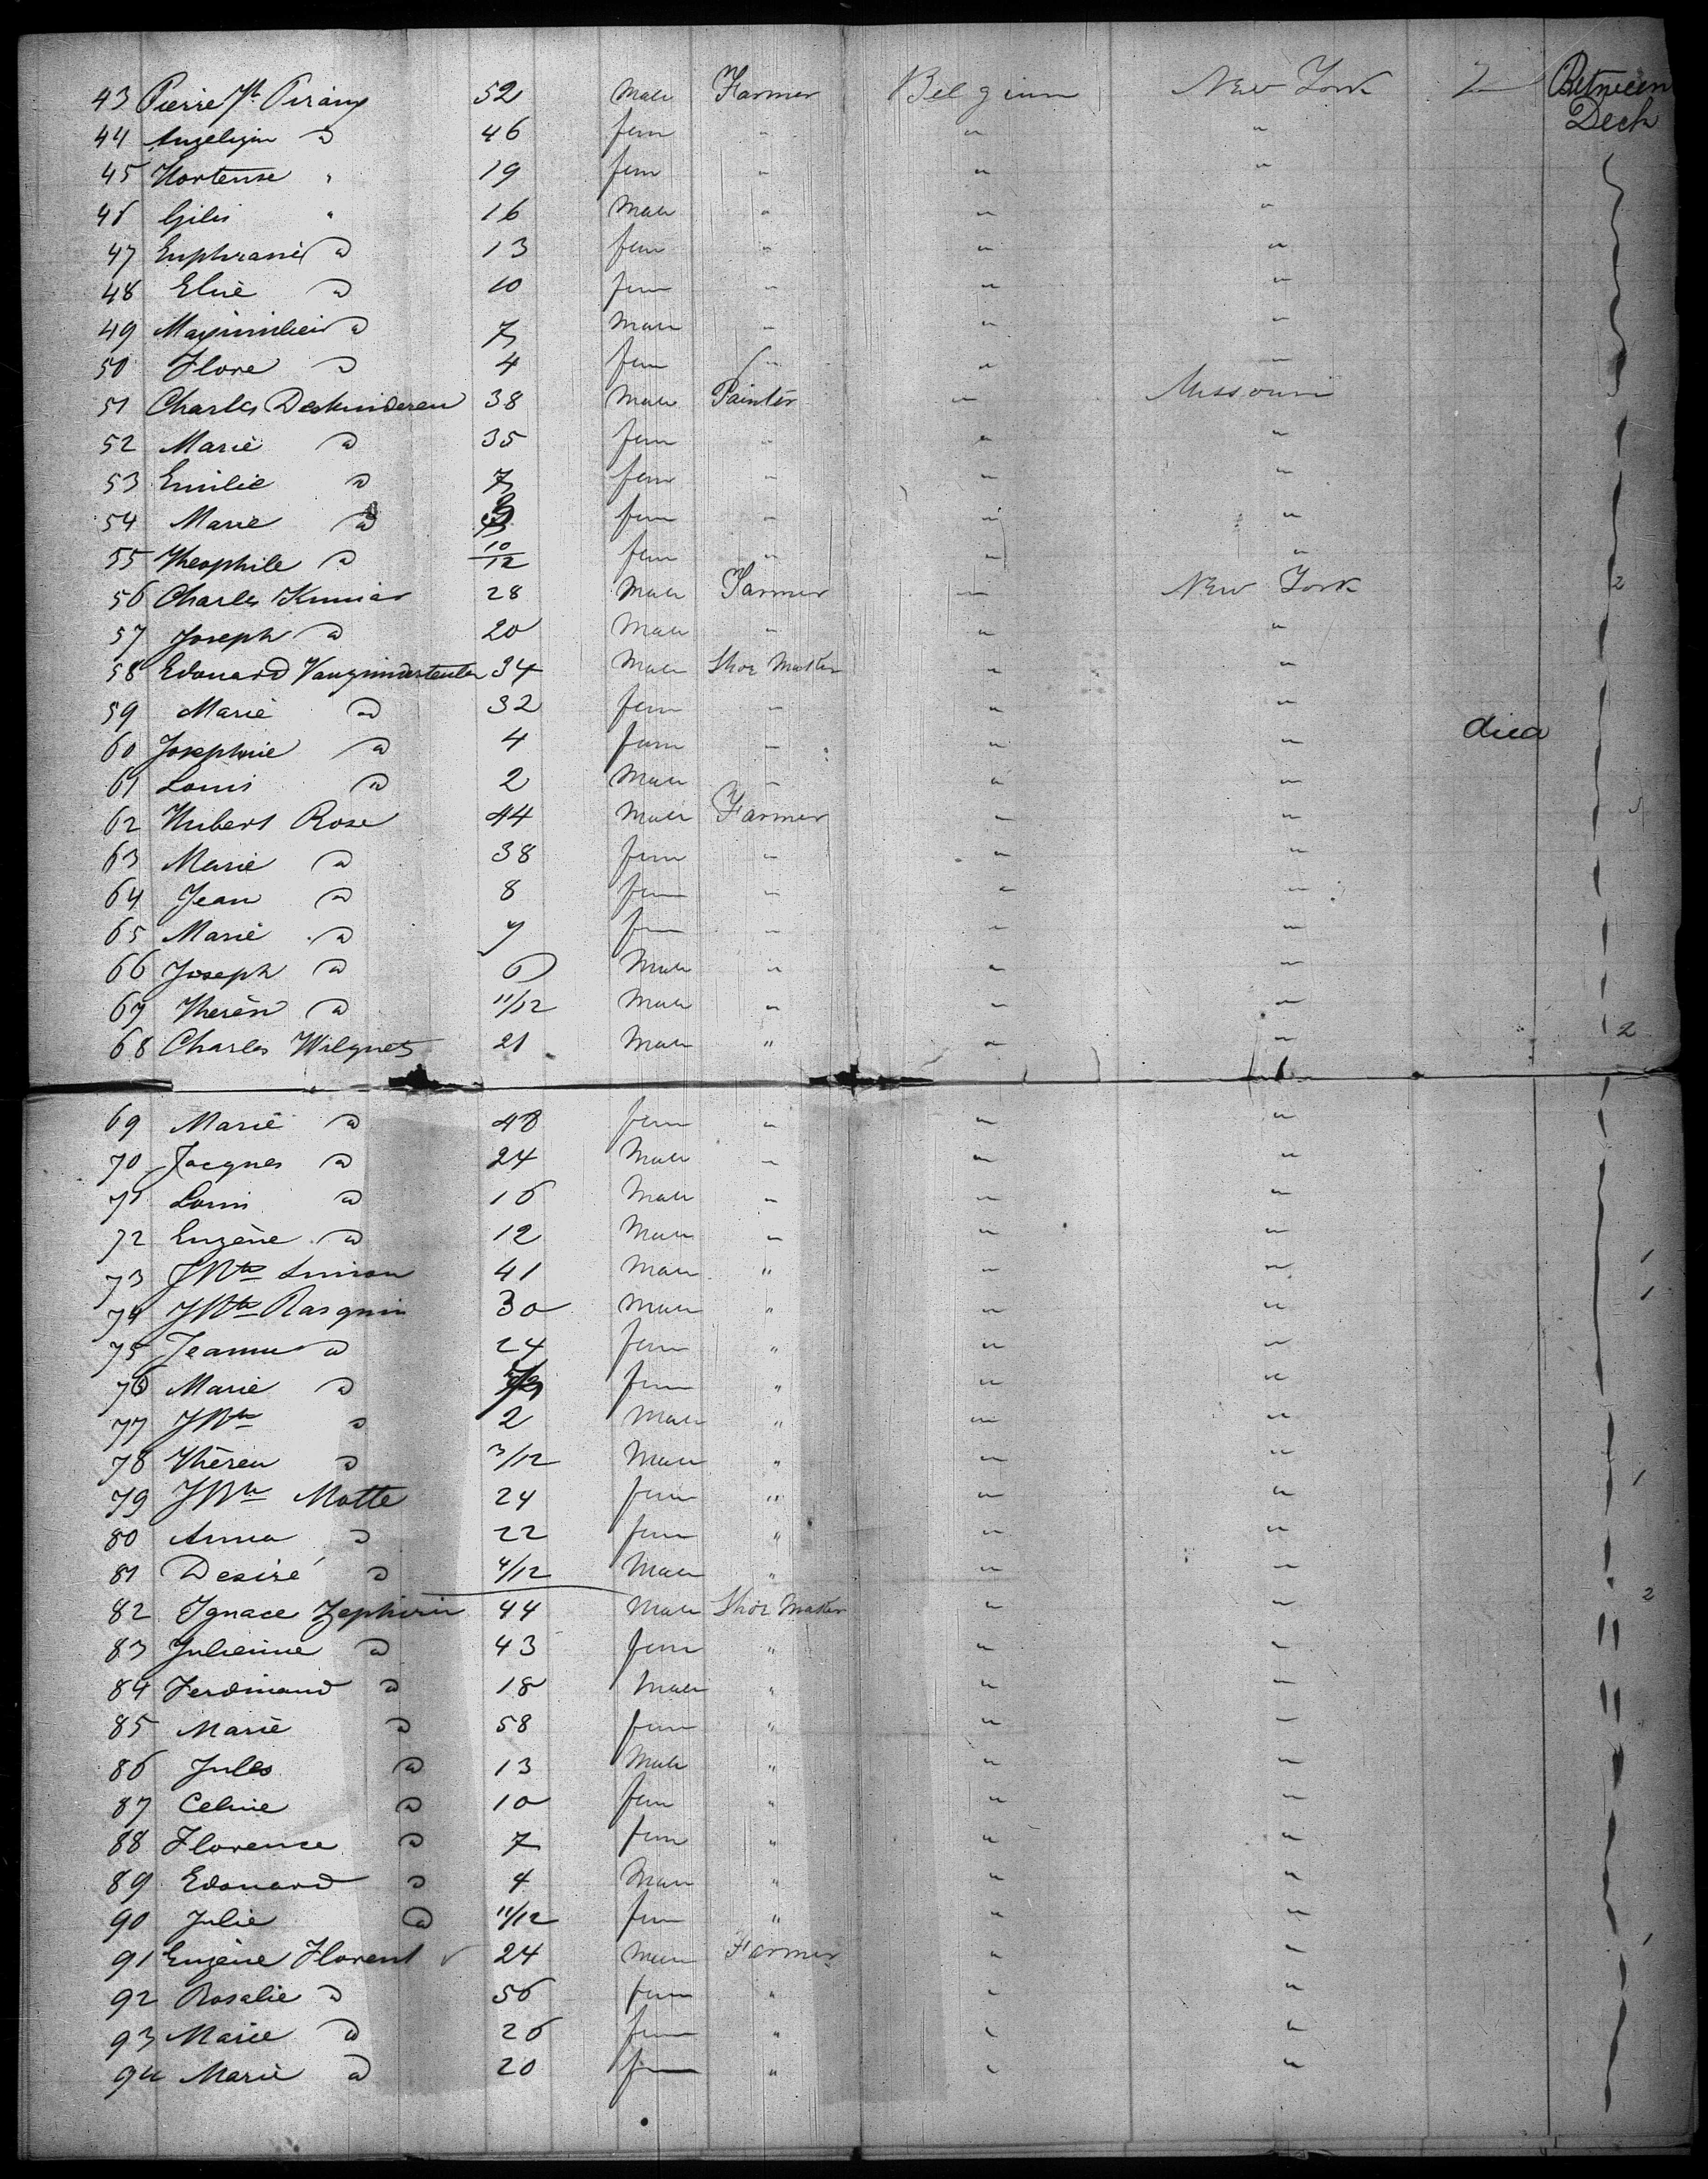 43 Pierre Jh Pirany 52 Male Farmer Belgium New York 2 Between
Deck
44 Angeligin d 46 fem " " "
45 Hortense " 19 fem " " "
46 Gilis " 16 Male " " "
47 Euphrasie d 13 fem " " "
48 Elise d 10 fem " " "
49 Maximilien d 7 Male " " "
50 Flore d 4 fem " " "
51 Charles Deskinderen 38 Male Painter " Missouri
52 Marie d 35 fem " " "
53 Emilie d 7 fem " " "
54 Marie d 3 fem " " "
55 Theophile d 10/12 fem " " "
56 Charles 28 Male Farmer " New York 2
57 Joseph d 20 Male " " "
58 Edouard 34 Male Shoe Maker " "
59 Marie d 32 fem " " "
60 Josephine d 4 fem " " " died
61 Louis d 2 Male " " "
62 Hubert Rose 44 Male Farmer " " 5
63 Marie d 38 fem " " "
64 Jean d 8 fem " " "
65 Marie d 7 fem " " "
66 Joseph d 6 Male " " "
67 Therèse d 11/12 Male " " "
68 Charles Wilquet 21 Male " " " 2
69 Marie d 48 fem " " "
70 Jacques d 24 Male " " "
71 Louis d 16 Male " " "
72 Eugène d 12 Male " " "
73 JBte Simon 41 Male " " " 1
74 JBte Rasquin 30 Male " " " 1
75 Jeanne d 24 fem " " "
76 Marie d fem " " "
77 JBte d 2 Male " " "
78 Thérèse d 3/12 Male " " "
79 JBte Motte 24 fem " " " 1
80 Anna d 22 fem " " "
81 Desiré d 4/12 Male " " "
82 Ignace Zephirin 44 Male Shoe Maker " " 2
83 Julienne d 43 fem " " "
84 Ferdinand d 18 Male " " "
85 Marie d 58 fem " " "
86 Jules d 13 Male " " "
87 Celine d 10 fem " " "
88 Florence d 7 fem " " "
89 Edouard d 4 Male " " "
90 Julie d 11/12 fem " " "
91 Eugène Florent 24 Male Farmer " " 1
92 Rosalie d 56 fem " " "
93 Marie d 26 fem " " "
94 Marie d 20 fem " " "